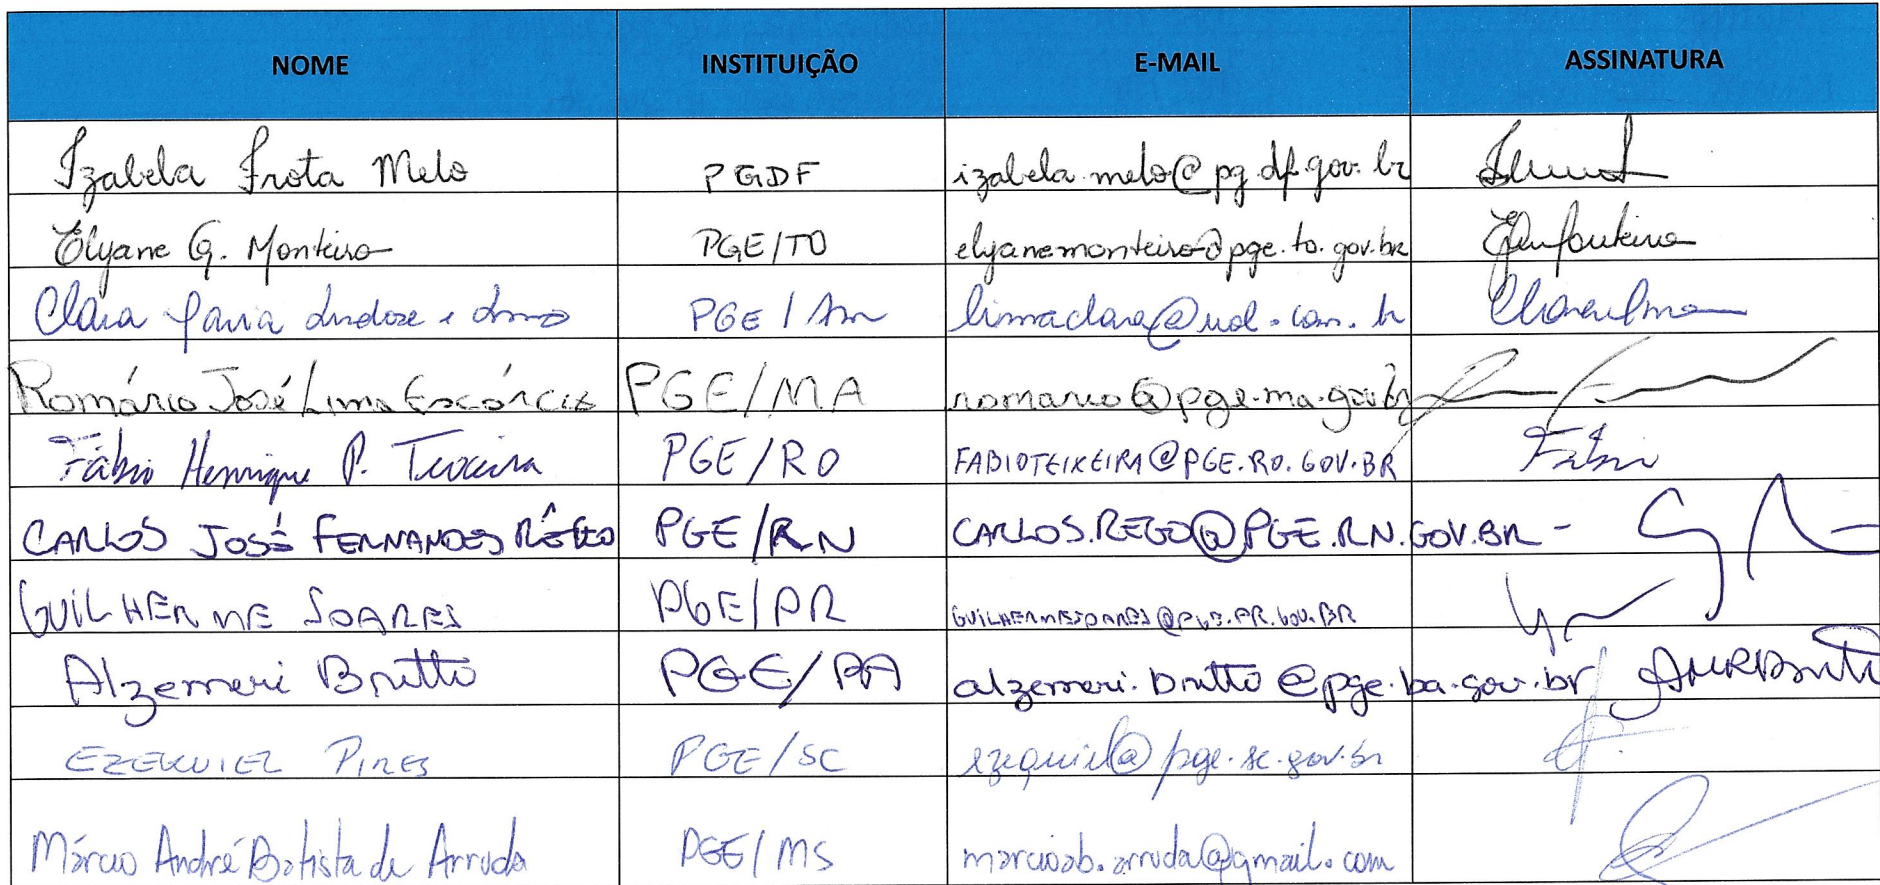 NOME INSTITUIÇÃO E-MAIL ASSINATURA
Izabela Frota Melo PGDF izabela.melo@pg.df.gov.br
Elyane G. Monteiro PGE/TO elyanemonteiro@pge.to.gov.br
Clara Maria Lindoso e Lima PGE/AM limaclara@uol.com.br
Romário José Lima Escórcio PGE/MA romario@pge.ma.gov.br
Fábio Henrique P. Teixeira PGE/RO FABIOTEIXEIRA@PGE.RO.GOV.BR Fábio
CARLOS JOSÉ FERNANDES RÊGO PGE/RN CARLOS.REGO@PGE.RN.GOV.BR -
GUILHERME SOARES PGE/PR GUILHERMESOARES@PGE.PR.GOV.BR
Alzemeri Britto PGE/BA alzemeri.britto@pge.ba.gov.br
EZEQUIEL PIRES PGE/SC ezequiel@pge.sc.gov.br
Márcio André Batista de Arruda PGE/MS marcioab.arruda@gmail.com